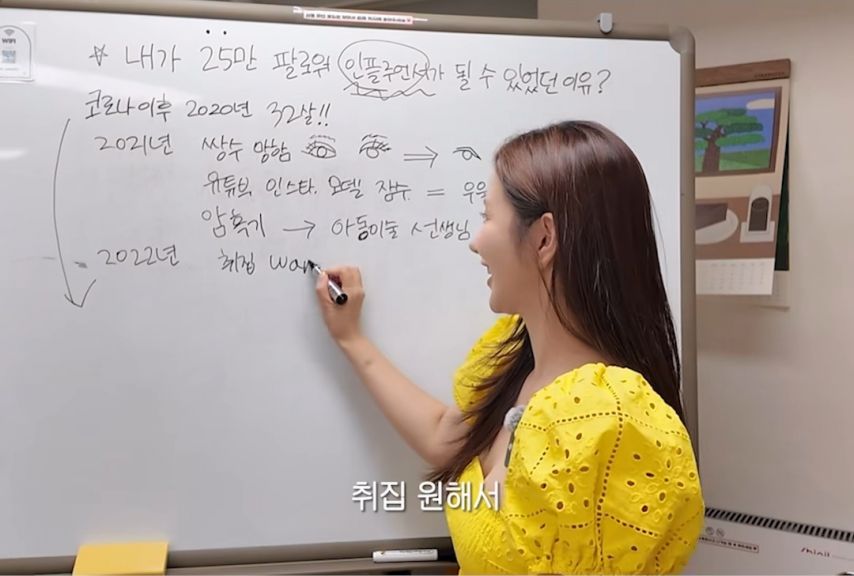 WiFi
☆ 내가 25만 팔로워 인플루언서가 될 수 있었던 이유?
코로나 이후 2020년 32살!!
2021년 쌍수 망함 ⇒
유튜브, 인스타. 모델 잠수. =
암흑기 → 아동미술 선생님
2022년 취집 wan
취집 원해서